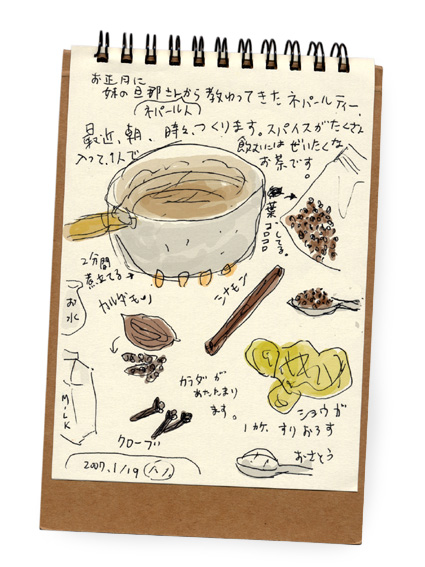 お正月に
妹の旦那さんから教わってきたネパールティー、
ネパール人
最近、朝、時々、つくります。スパイスがたくさん
入って、1人で
飲むにはぜいたくな
お茶です。
葉
コロコロ
してる。
2分間
煮立てる→
お水
カルダモン
シナモン
カラダが
あたたまり
ます。
MiLK
クローブ
ショウガ
1カケ、すりおろす
おさとう
2007.1/19